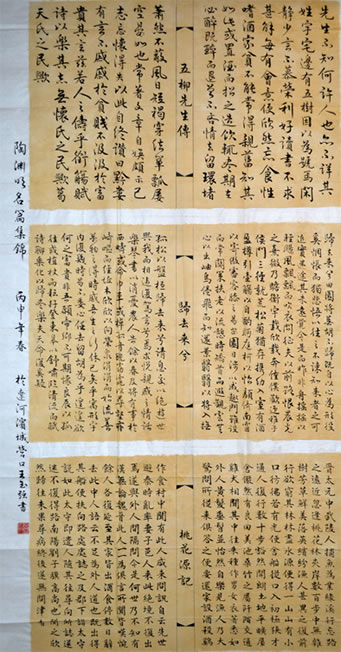 先生不知何許人也亦不詳其
姓字宅邊有五樹因以為號焉閑
靜少言不慕榮利好讀書不求
甚解每有會意便欣然忘食性
嗜酒家貧不能常得親舊知其
如此或置酒而招之造飲輒盡期在
必醉既醉而退曾不吝情去留環堵
五柳先生傳
蕭然不蔽風日短褐穿結簞瓢屢
空晏如也常著文章自娛頗示己
志忘懷得失以此自終贊曰黔婁
有言不戚戚於貧賤不汲汲於富
貴其言茲若人之儔乎銜觴賦
詩以樂其志無懷氏之民歟葛
天氏之民歟
歸去來兮田園將蕪胡不歸既自以心為形役
奚惆悵而獨悲悟已往之不諫知來者之可
追實迷途其未遠覺今是而昨非舟搖搖以
輕颺風飄飄而吹衣問征夫以前路恨晨光
之熹微乃瞻衡宇載欣載奔僮僕歡迎稚子
候門三徑就荒松菊猶存攜幼入室有酒
盈樽引壺觴以自酌眄庭柯以怡顏倚南窗
以寄傲審容膝之易安園日涉以成趣門雖設
而常關策扶老以流憩時矯首而遐觀雲無
心以出岫鳥倦飛而知還景翳翳以將入撫
歸去來兮
孤松以盤桓歸去來兮請息交以絕遊世
與我而相違復駕言兮焉求悅親戚之情話
樂琴書以消憂農人告余以春及將有事於
西疇或命巾車或棹孤舟既窈窕以尋壑亦
崎嶇而經丘木欣欣以向榮泉涓涓而始流
善萬物之得時感吾生之行休已矣乎寓形宇
內復幾時曷不委心任去留胡為乎遑遑欲
何之富貴非吾願帝鄉不可期懷良辰以孤
往或植杖而耘耔登東皋以舒嘯臨清流而賦
詩聊乘化以歸盡樂夫天命復奚疑
晉太元中武陵人捕魚為業緣溪行忘路
之遠近忽逢桃花林夾岸數百步中無雜
樹芳草鮮美落英繽紛漁人甚異之復前
行欲窮其林林盡水源便得一山山有小
口彷彿若有光便舍船從口入初極狹才
通人復行數十步豁然開朗土地平曠屋
舍儼然有良田美池桑竹之屬阡陌交通
雞犬相聞其中往來種作男女衣著悉如
外人黃髮垂髫並怡然自樂見漁人乃大
驚問所從來具答之便要還家設酒殺雞
桃花源記
作食村中聞有此人咸來問訊自云先世
避秦時亂率妻子邑人來此絕境不復出
焉遂與外人間隔問今是何世乃不知有
漢無論魏晉此人一一為具言所聞皆嘆惋
餘人各復延至其家皆出酒食停數日辭
去此中人語云不足為外人道也既出得
其船便扶向路處處誌之及郡下詣太守
說如此太守即遣人隨其往尋向所誌遂
迷不復得路南陽劉子驥高尚士也聞之欣
然規往未果尋病終後遂無問津者
陶淵明名篇集錦 丙申年春 於遼河濱城營口王玉强書